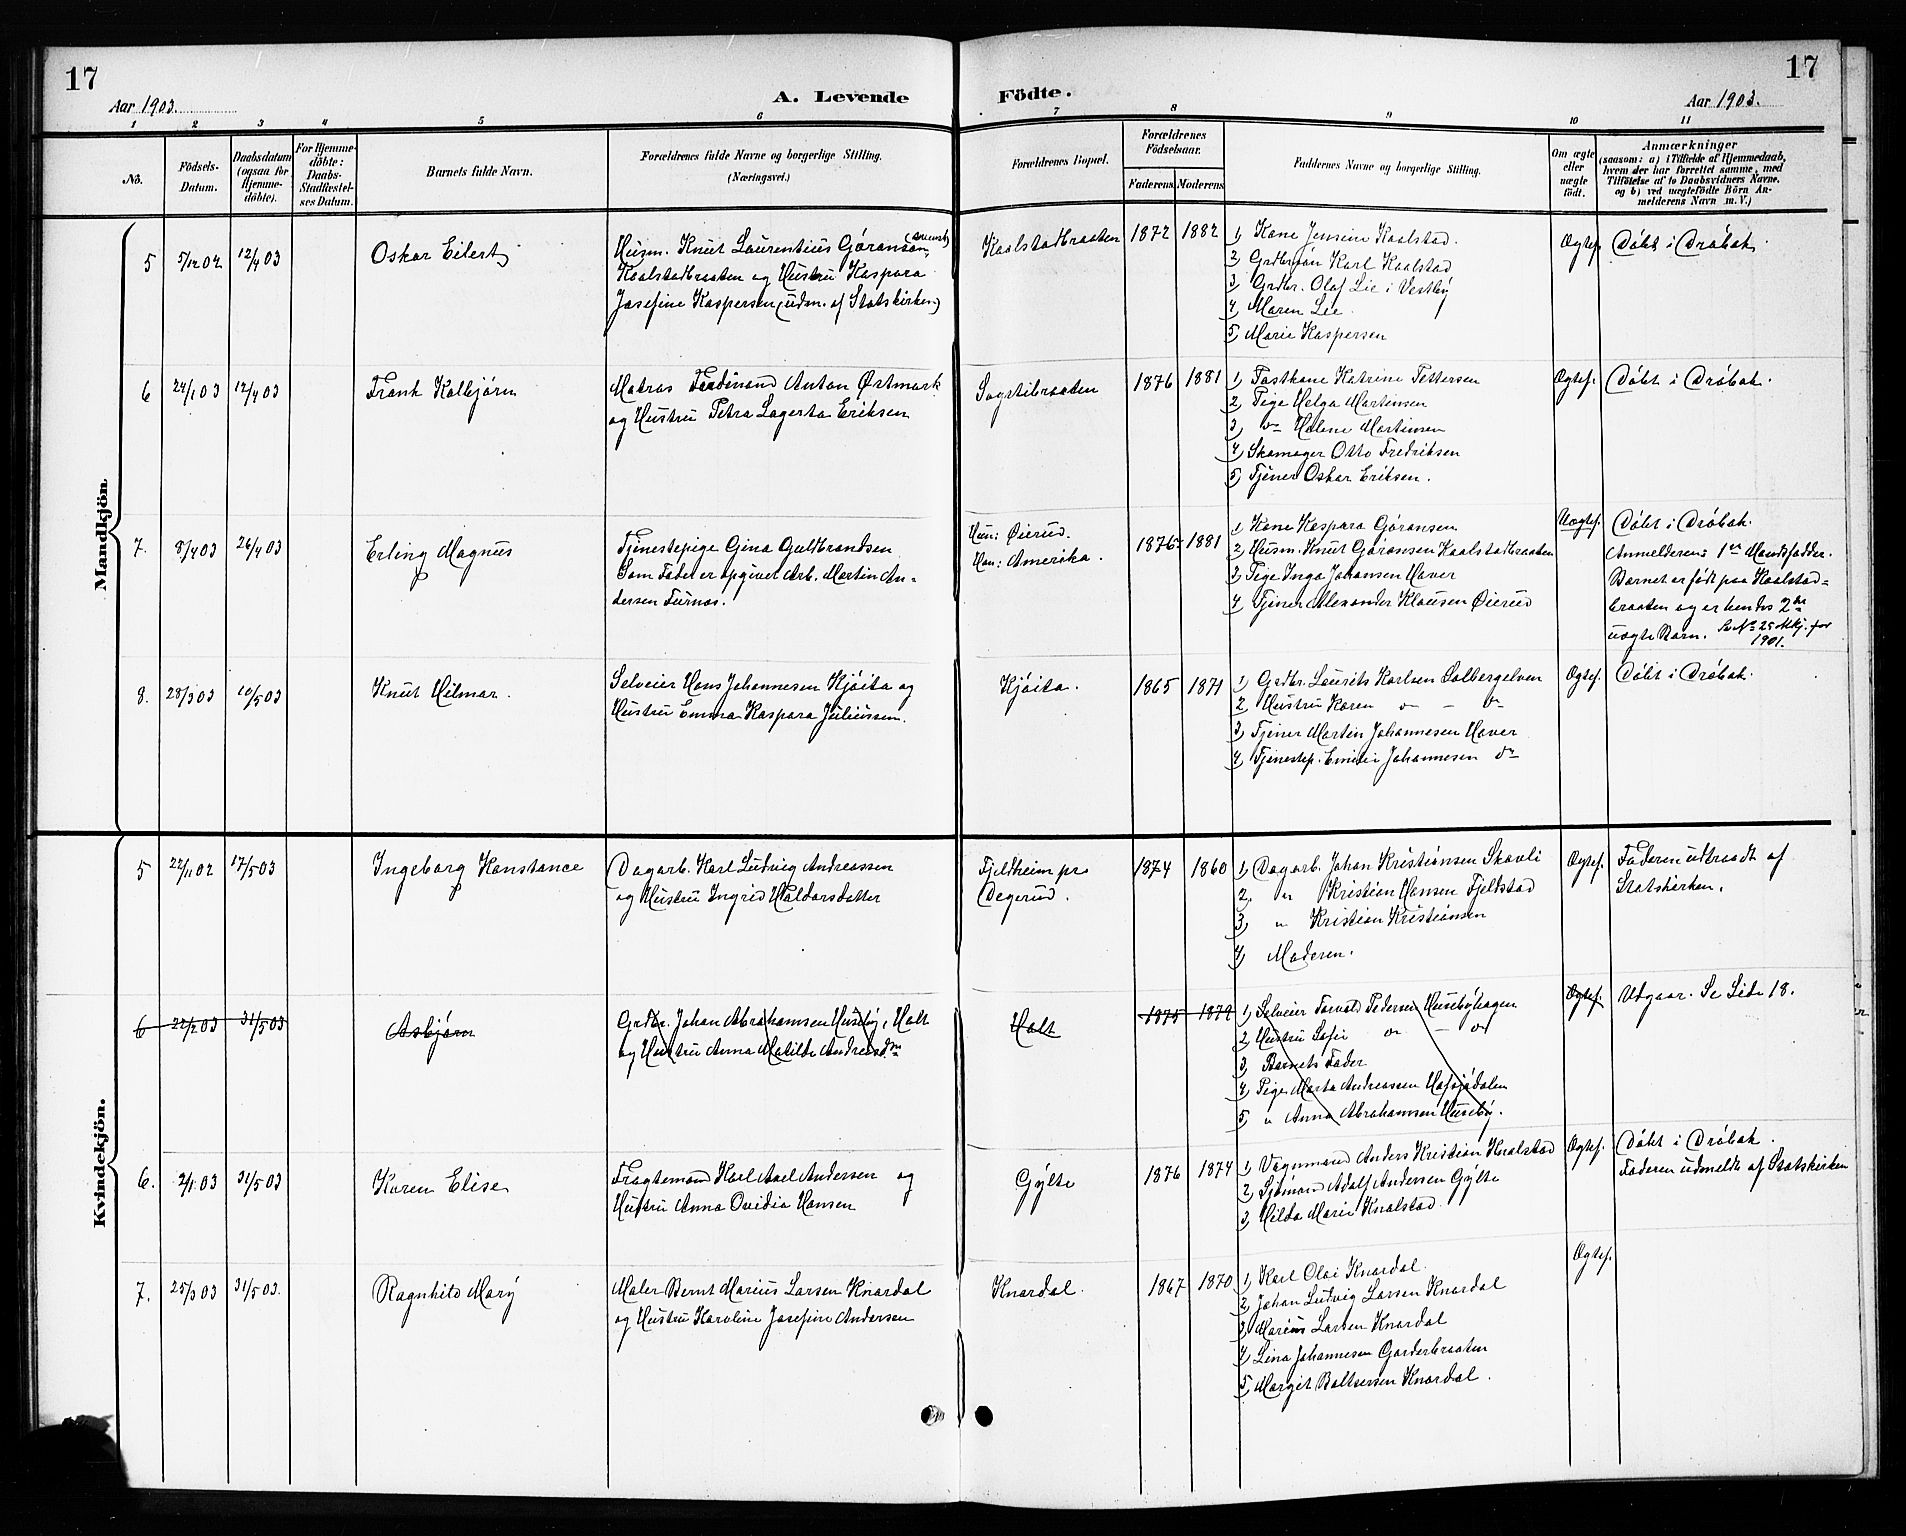 17
17
Aar 1903.
A. Levende Födte.
Aar 1903.
1 2 3 4 5 6 7 8 9 10 11
No.
Födsels-
Datum.
Daabsdatum
(ogsaa for
Hjemme-
döbte).
For Hjemme-
döbte:
Daabs-
Stadfæstel-
ses Datum.
Barnets fulde Navn.
Forældrenes fulde Navne og borgerlige Stilling.
(Næringsvei.)
Forældrenes Bopæl.
Forældrenes
Födselsaar.
Faderens
Moderens
Faddernes Navne og borgerlige Stilling.
Om ægte
eller
uægte
födt.
Anmærkninger
(saasom: a) i Tilfælde af Hjemmedaab,
hvem der har forrettet samme, med
Tilföielse af to Daabsvidners Navne,
og b) ved uægtefödte Börn An-
melderens Navn m. V.)
Mandkjön
5
5/12 02
12/4 03
Oskar Eilert
Husm. Knut Laurentius Göransen (svensk)
Kaalstadbraaten og Hustru Kaspara
Josefine Kaspersen (udm. af Statskirken)
Kaalstadbraaten
1872
1882
1) Kone Jensine Kaalstad.
2) Grdbr.søn Karl Kaalstad
3) Grdbr. Olaf Lie i Vestby
4) Maren Lie
5) Marie Kaspersen
Ægtef.
Döbt i Dröbak.
6
24/1 03
12/4 03
Frank Kolbjörn
Matros Ferdinand Anton Østmark
og Hustru Petra Lagerta Eriksen
Sogstibraaten
1876
1881
1) Fastkone Katrine Pettersen
2) Pige Helga Martinsen
3) do Halene Martinsen
4) Skomager Otto Fredriksen
5) Tjener Oskar Eriksen.
Ægtef.
Döbt i Dröbak.
7.
8/4 03
26/4 03
Erling Magnus
Tjenestepige Gina Guldbrandsen
Som Fader er opgivet Arb. Martin An-
dersen Furnæs.
Hun: Øierud.
Han: Amerika.
1876
1881
1) Kone Kaspara Göransen
2) Husm. Knut Göransen Kaalstadbraaten
3) Pige Inga Johansen Haver
4) Tjener Alexander Klausen Øierud
Uægtef.
Döbt i Dröbak.
Anmelderen: 1ste Mandsfadder.
Barnet er födt paa Kaalstad-
braaten og er hendes 2det
uægte Barn. Se No 25 Mkj. for
1901.
8.
28/3 03
10/5 03
Knut Hilmar.
Selveier Hans Johannesen Kjöita og
Hustru Emma Kaspara Juliussen.
Kjöita.
1865
1871
1) Grdbr. Laurits Karlsen Solbergelven
2) Hustru Karen do - do
3) Tjener Martin Johannesen Haver
4) Tjenestep. Emilie Johannesen do
Ægtef.
Döbt i Dröbak.
Kvindekjön.
5
22/11 02
17/5 03
Ingeborg Konstance
Dagarb. Karl Ludvig Andreassen
og Hustru Ingrid Haldorsdatter
Fjeldheim pr.
Degerud.
1874
1860
1) Dagarb. Johan Kristiansen Skovli
2) " Kristian Hansen Fjeldstad
3) " Kristian Kristiansen
4) Moderen.
Ægtef.
Faderen udtraadt af
Statskirken.
6
22/2 03
31/5 03
Asbjörn
Grdbr. Johan Abrahamsen Huseby, Holt
og Hustru Anna Matilde Andreasdtr
Holt
1875
1872
1) Selveier Torvald Pedersen Husebyhagen
2) Hustru Sofie do - do
3) Barnets Fader
4) Pige Marta Andreassen Hafsjödalen
5) " Anna Abrahamsen Huseby.
Ægtef.
Udgaar. Se Side 18.
6.
2/1 03
31/5 03
Karen Elise
Fragtemand Karl Axel Andersen og
Hustru Anna Ovidia Hansen
Gylte
1876
1874
1) Vognmand Anders Kristian Knalstad
2) Sjömand Adolf Andersen Gylte
3) Hilda Marie Knalstad
Ægtef.
Döbt i Dröbak.
Faderen udmeldt af Statskirken
7.
25/3 03
31/5 03.
Ragnhild Mary
Maler Bernt Marius Larsen Knardal
og Hustru Karoline Josefine Andersen
Knardal.
1867
1870
1) Karl Olai Knardal.
2) Johan Ludvig Larsen Knardal
3) Marius Larsen Knardal
4) Lina Johannesen Garderbraaten
5) Margit Baltsersen Knardal.
Ægtef.